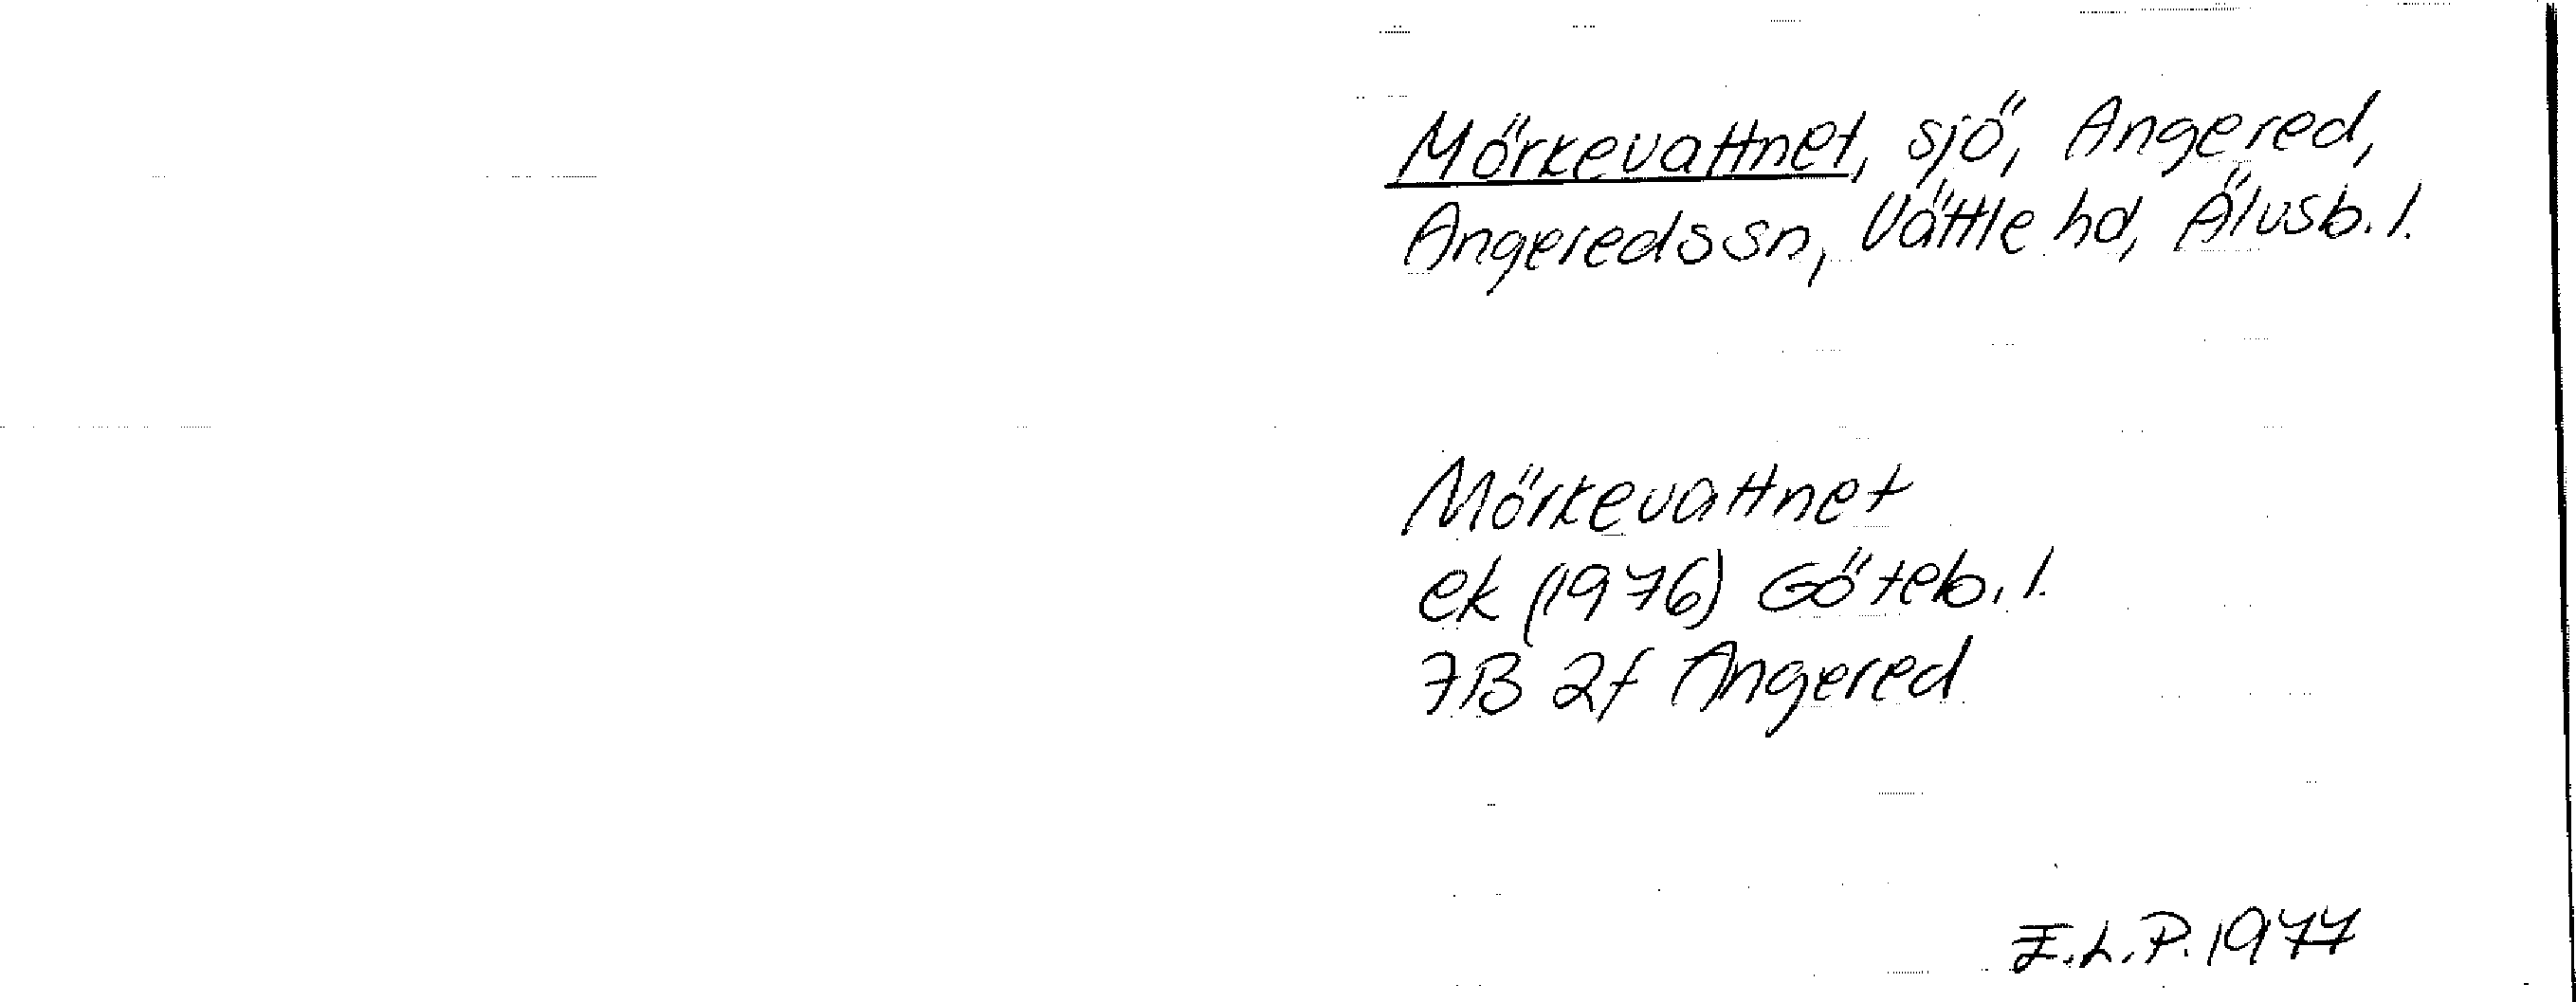 Mörkevattnet, sjö, Angered,
Angereds sn, Vättle hd, Älvsb. l.
Mörkevattnet
ek (1976) Göteb. l.
7B 2f Angered
E.L.P. 1977